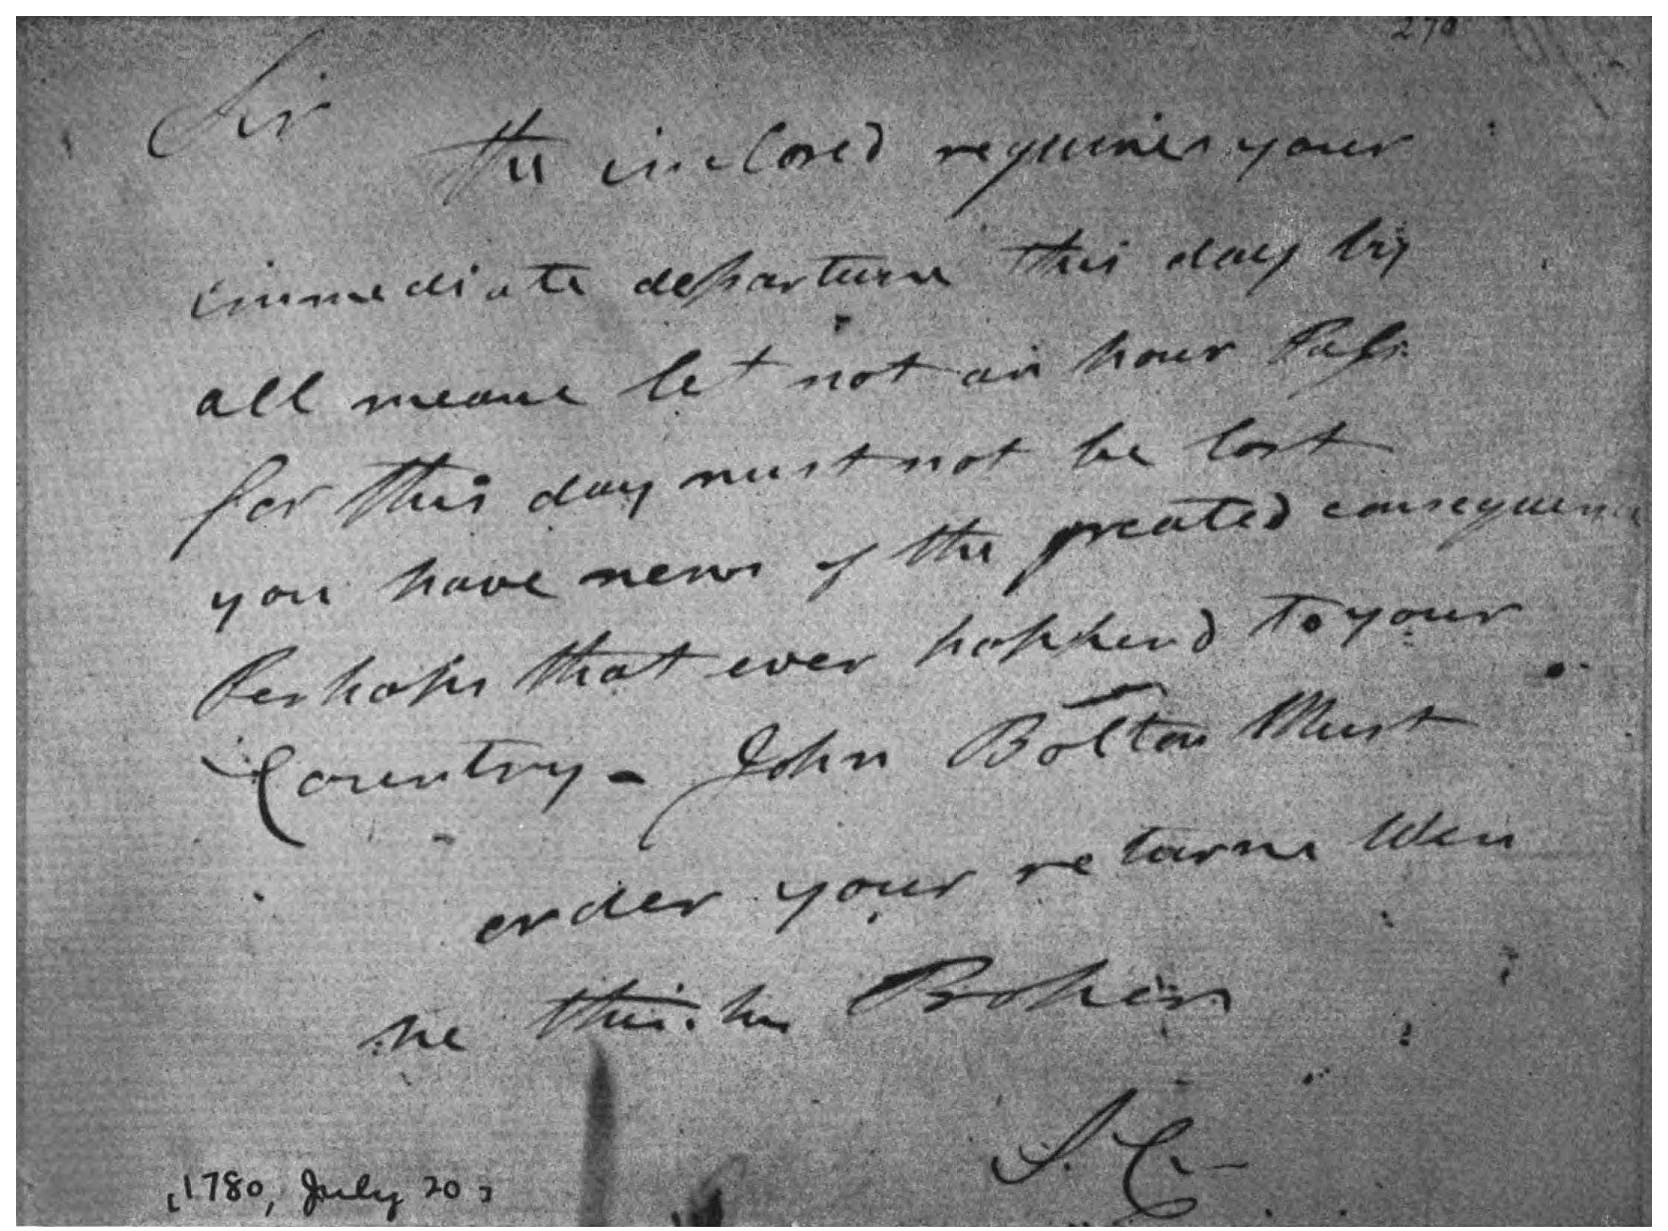 270
Sir
the inclosed requires your
immediate departure this day by
all means let not an hour Pass
for this day must not be lost
you have news of the greated consequence
Perhaps that ever happend to your
Country - John Bolton Must
order your returne When
he thinks Proper
S. C.
[1780, July 20]